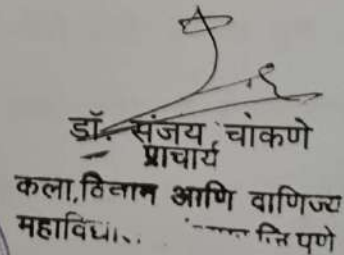 डॉ. संजय चांकणे
प्राचार्य
कला,विज्ञान आणि वाणिज्य
महाविद्या.. पुणे